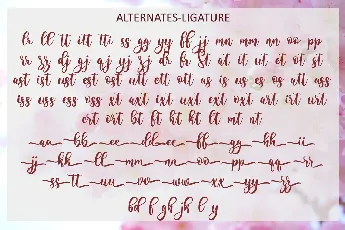 ALTERNATES-LIGATURE
lr ll tt itt tti ss gg yy ff jj mn mm nn oo pp
rr zz dj gj aj yj zj dr fr st at it ut et ot st
ast ist ust est ost utt ett ott as is us es os att uss
iss uss ess oss xt axt ixt uxt ext oxt art irt urt
ert ort bt ft ht kt lt mt nt
aa bb ee dd ee ff gg hh ii
jj kk ll mm nn oo pp qq rr
ss tt uu vv ww xx yy zz
bd f gh jh l y